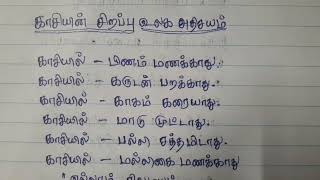 காசியின் சிறப்பு உலக அதிசயம்
காசியில் – பிணம் மணக்காது.
காசியில் – கருடன் பறக்காது.
காசியில் – காகம் கரையாது.
காசியில் – மாடு முட்டாது.
காசியில் – பல்லி சத்தமிடாது.
காசியில் – மல்லிகை மணக்காது